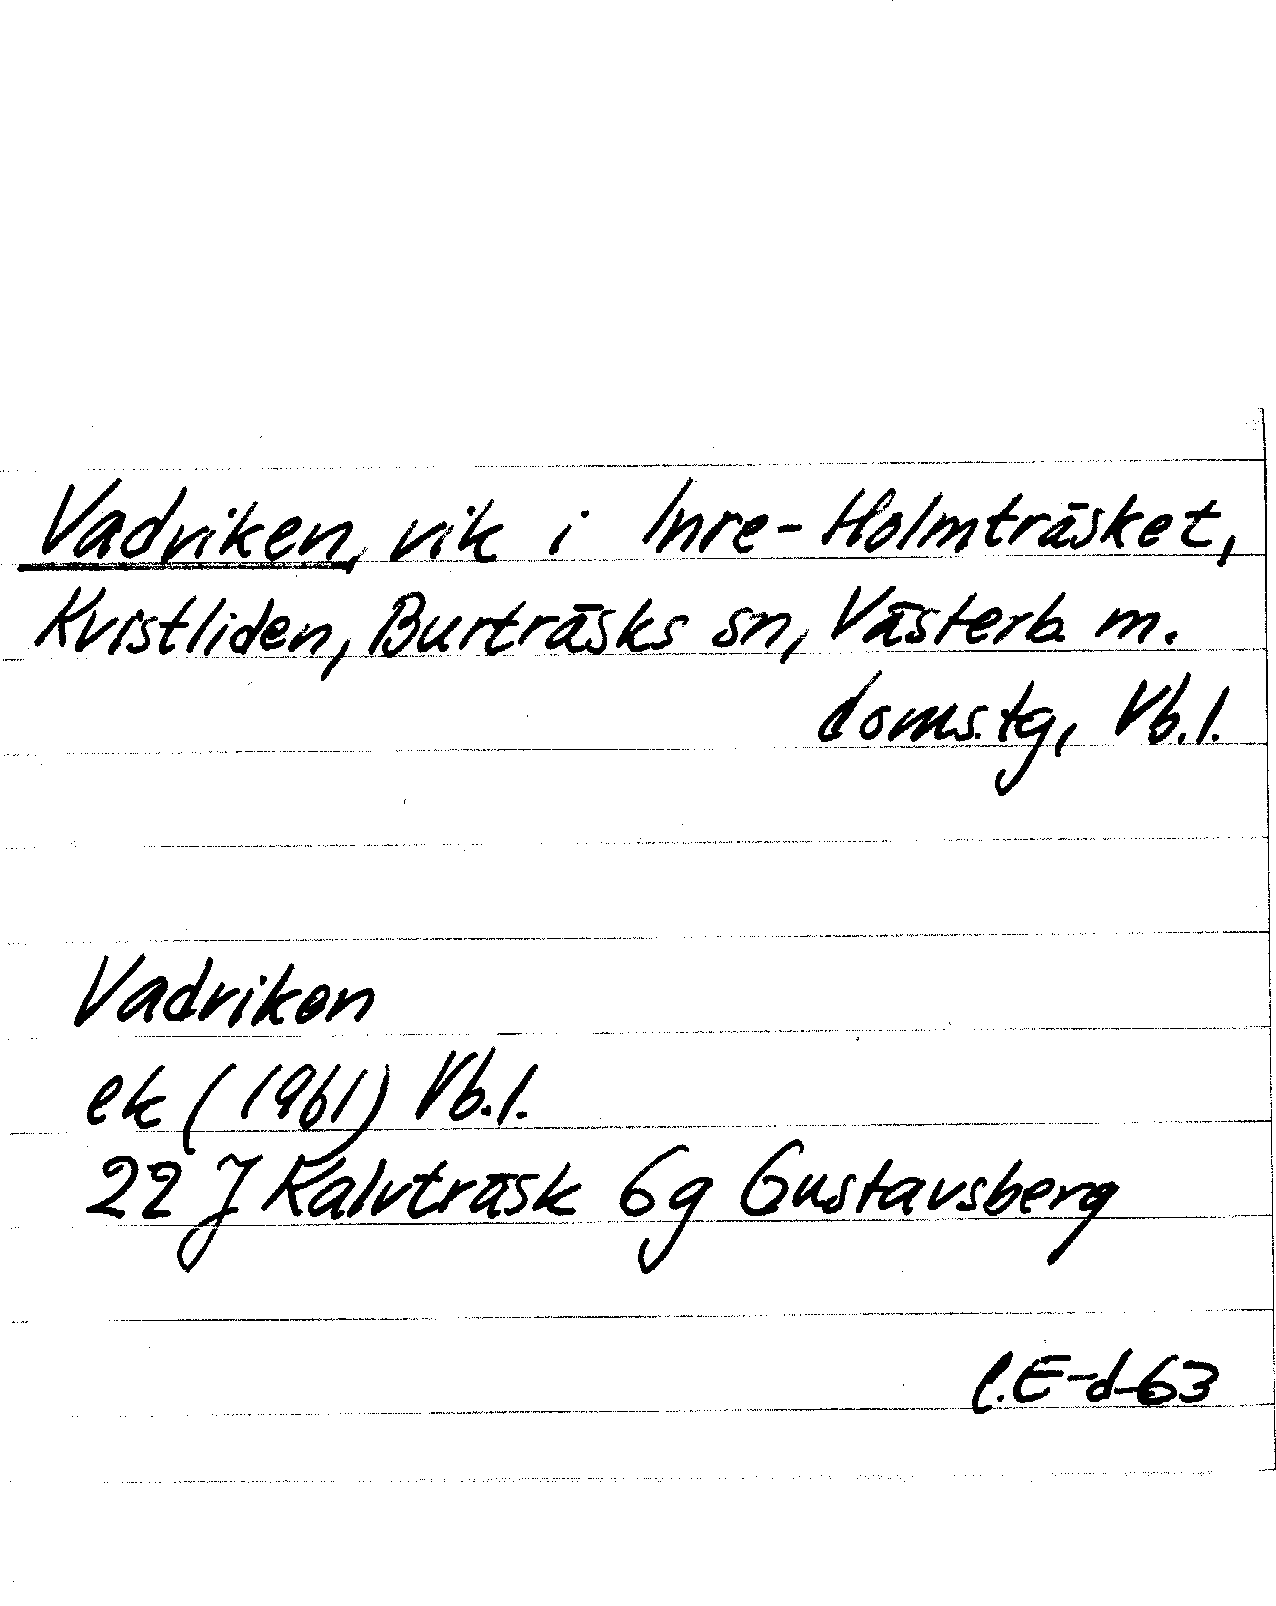 Vadviken, vik i Inre-Holmträsket,
Kvistliden, Burträsks sn, Västerb. m.
doms.tg, Vb.l.
Vadviken
ek (1961) Vb.l.
22 J Kalvträsk 6g Gustavsberg
C.E-d-63